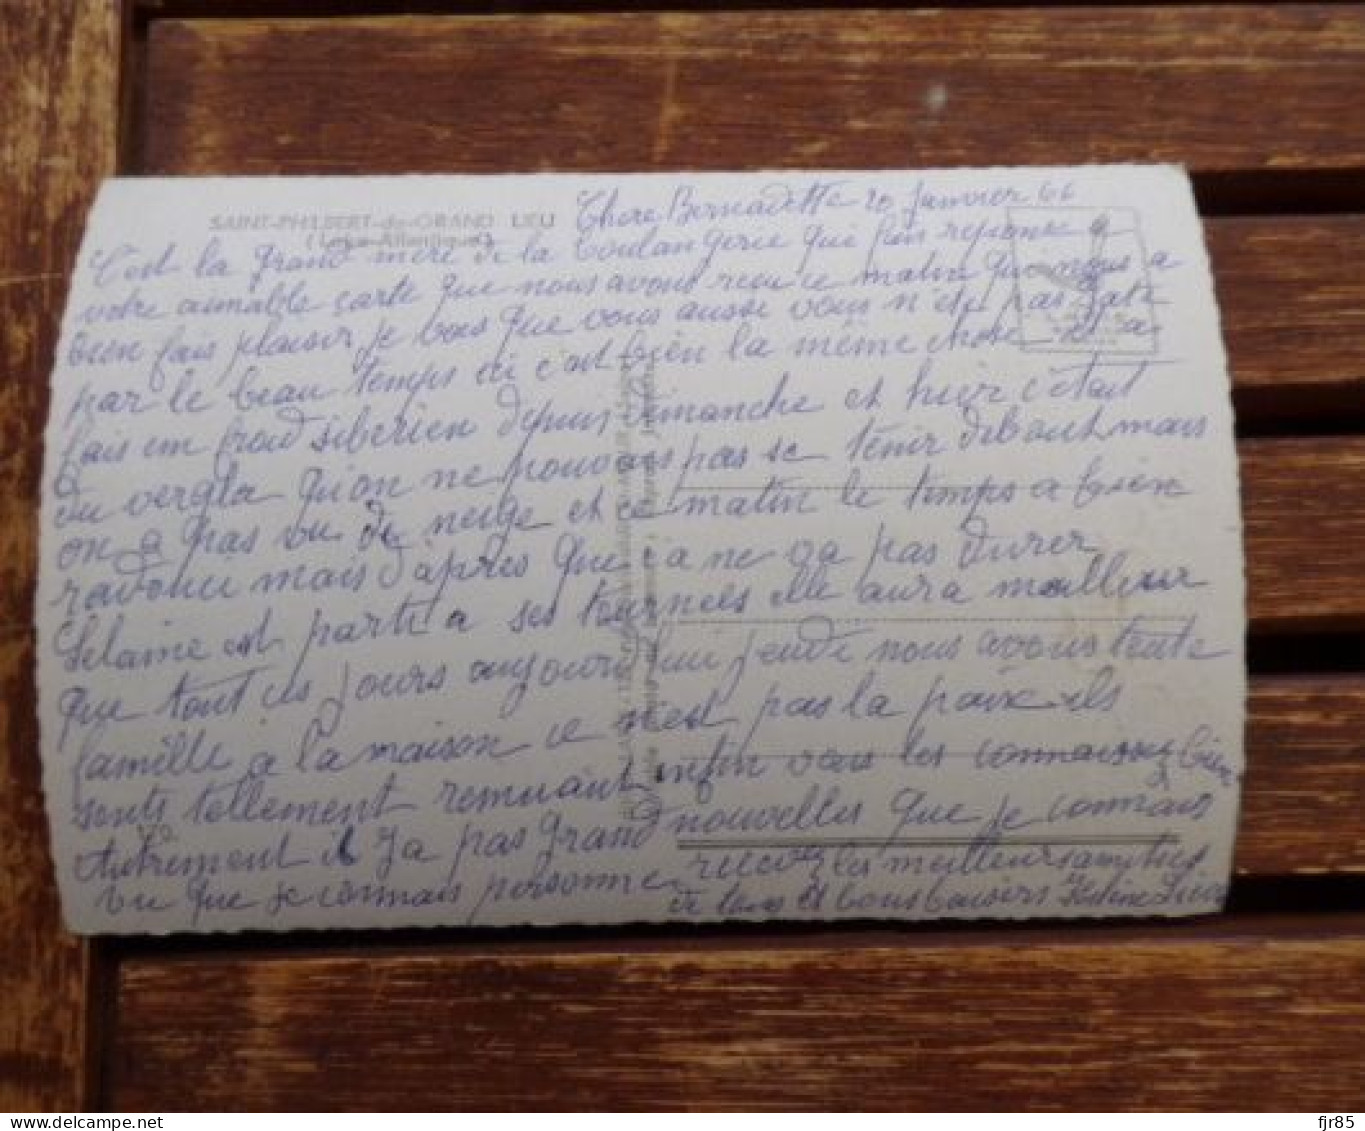 SAINT-PHILBERT-de-GRAND LIEU
(Loire-Atlantique)
Chere Bernadette 20 Janvier 66
C'est la grand mère de la boulangerie qui fais reponse a
votre aimable carte que nous avons recu ce matin qui nous a
bien fais plaisir, je vois que vous aussi vous n'est pas gate
par le beau temps ici c'est bien la même chose il a
fais un froid siberien depuis dimanche et hier c'était
du vergla qu'on ne pouvais pas se tenir debout mais
on a pas vu de neige et ce matin le temps a bien
radouci mais d'apres que ca ne va pas durer
Gelaine est parti a ses tournees elle aura meilleur
que tout ces jours aujourd'hui jeudi nous avons toute
famille a la maison ce n'est pas la paix ils
sonts tellement remuant enfin vous les connaissez bien
Autrement il y a pas grand nouvelles que je connais
vu que je connais personne recevez les meilleurs amities
de tous et bons baisers
fjr85